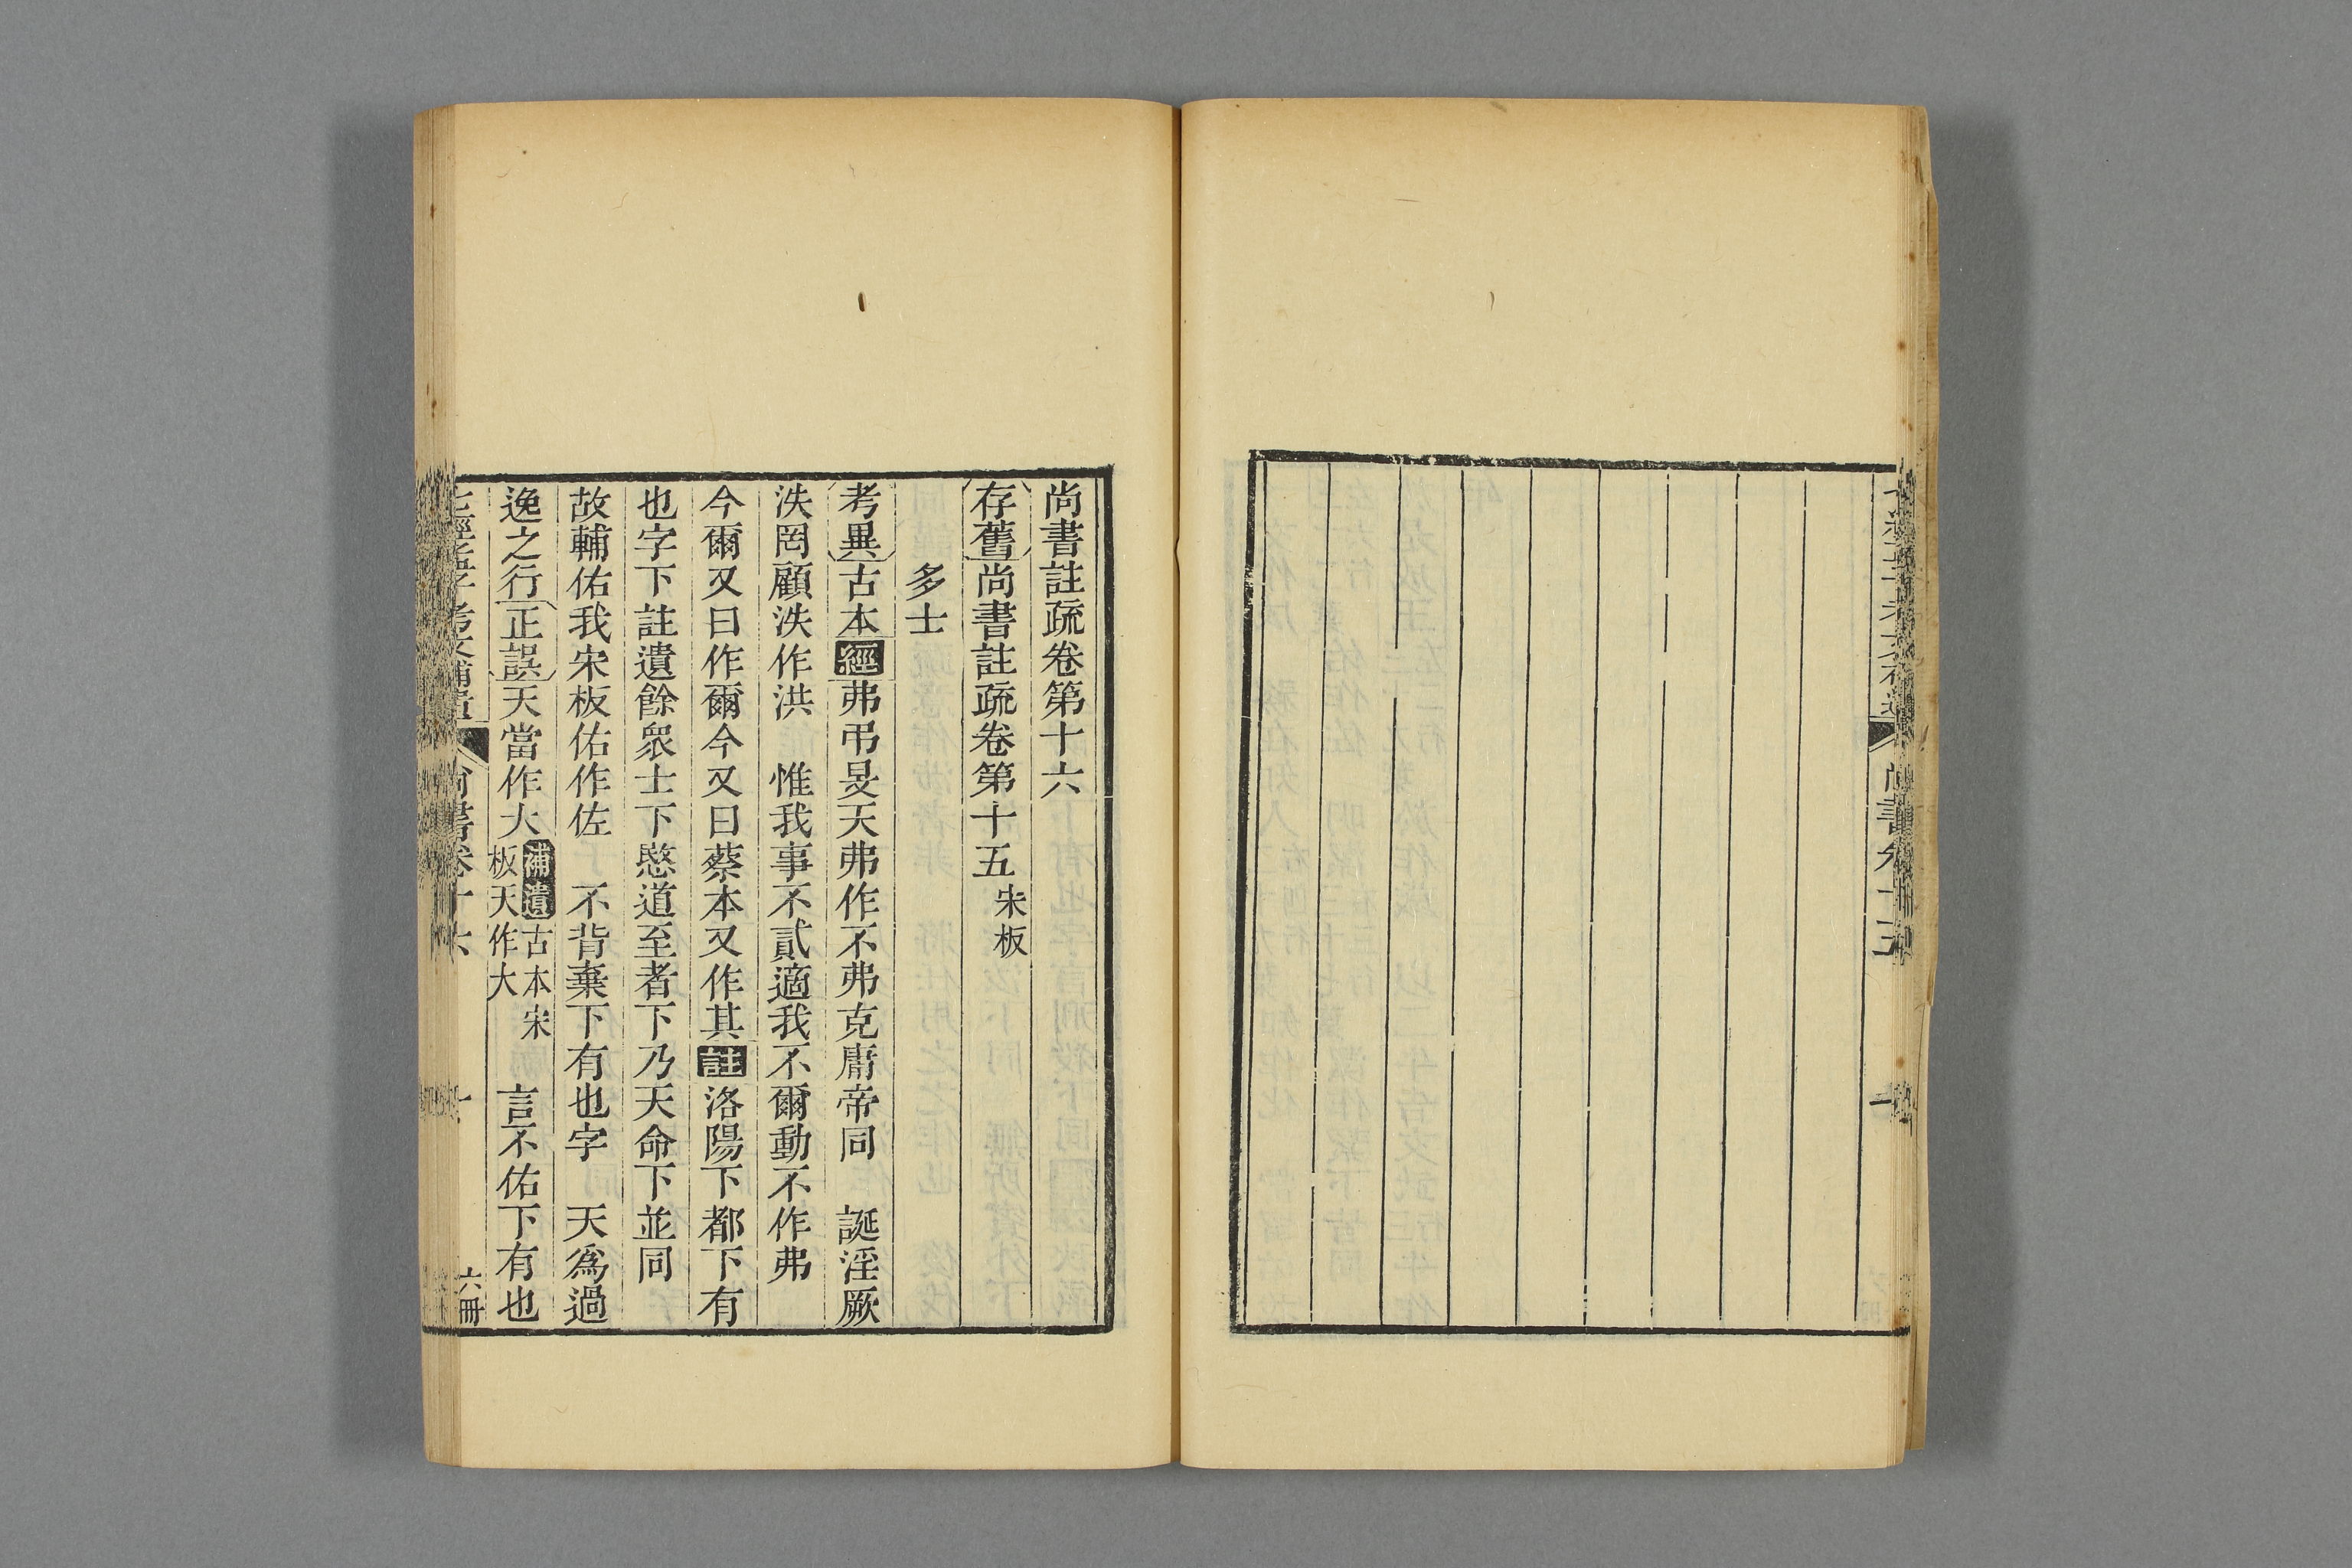 尚書卷十五
尚書註疏卷第十六
存舊尚書註疏卷第十五宋板
多士
考異古本經弗弔旻天弗作不弗克庸帝同　誕淫厥
泆罔顧泆作洪　惟我事不貳適我不爾動不作弗
今爾又曰作爾今又曰蔡本又作其註洛陽下都下有
也字下註遺餘衆士下愍道至者下乃天命下並同
故輔佑我宋板佑作佐　不背棄下有也字　天爲過
逸之行正誤天當作大補遺古本宋板天作大　言不佑下有也
七經孟子考文補遺　尚書卷十六　一　六冊